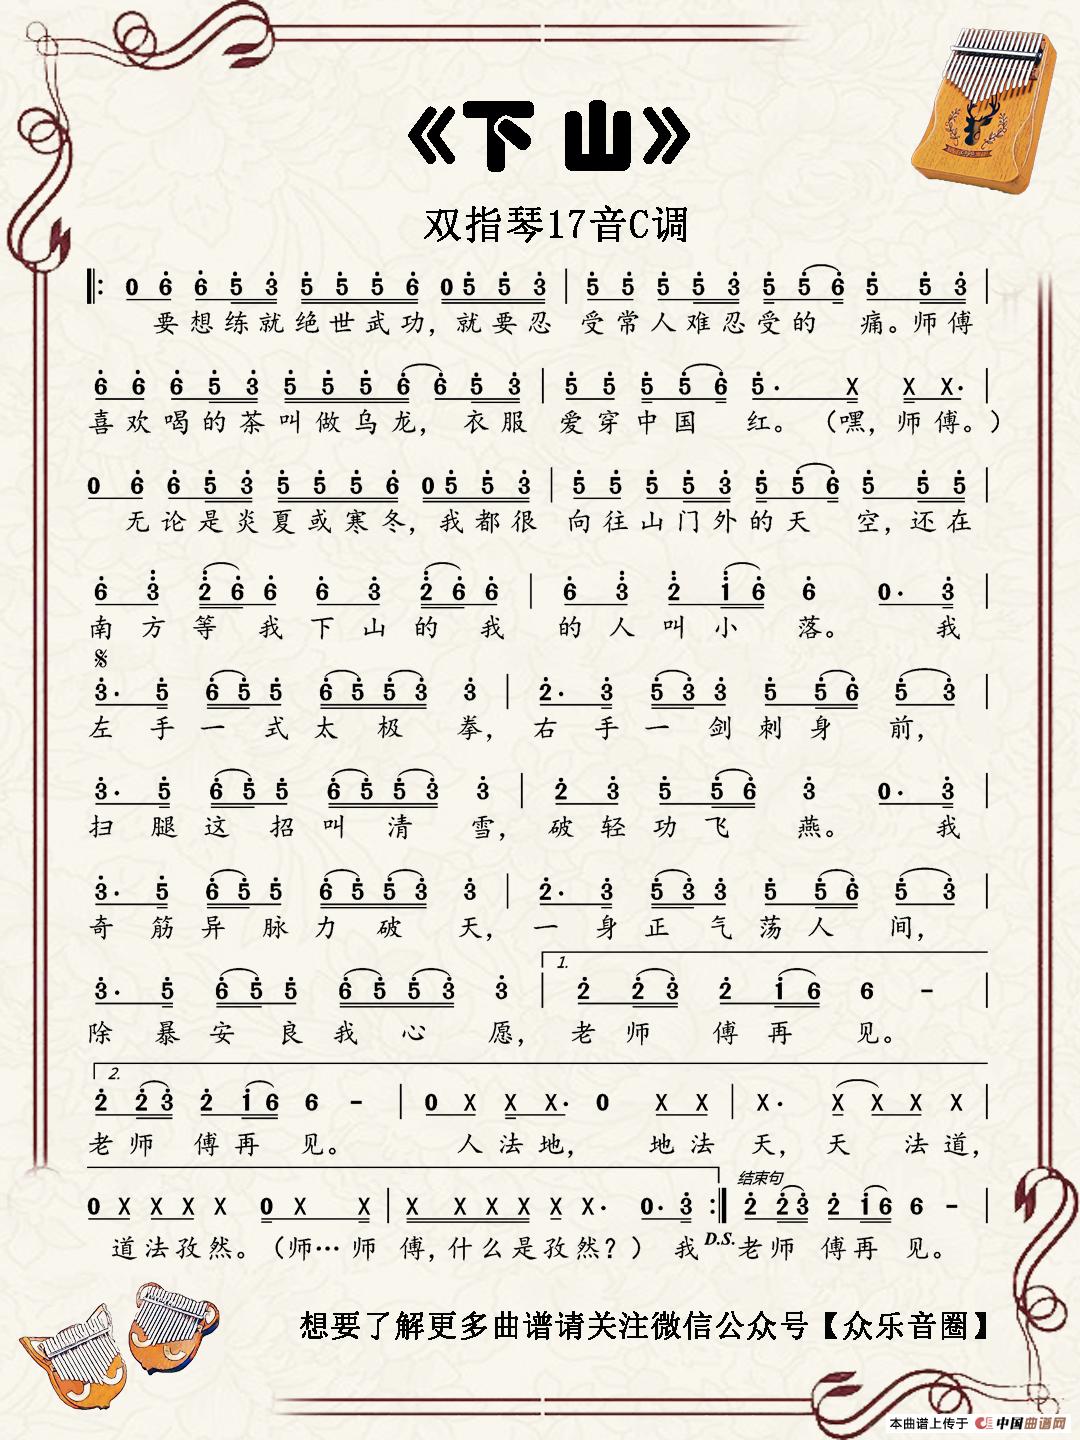 《下山》
双指琴17音C调
0 6 6 5 3 5 5 5 6 0 5 5 3 | 5 5 5 5 3 5 5 6 5 5 3 |
要想练就绝世武功，就要忍 受常人难忍受的 痛。师傅
6 6 6 5 3 5 5 5 6 6 5 3 | 5 5 5 5 6 5· X X X· |
喜欢喝的茶叫做乌龙，衣服 爱穿中国 红。（嘿，师傅。）
0 6 6 5 3 5 5 5 6 0 5 5 3 | 5 5 5 5 3 5 5 6 5 5 5 |
无论是炎夏或寒冬，我都很 向往山门外的天 空，还在
6 3 2 6 6 6 3 2 6 6 | 6 3 2 1 6 6 0· 3 |
南方等我下山的我 的人叫小 落。 我
3· 5 6 5 5 6 5 5 3 3 | 2· 3 5 3 3 5 5 6 5 3 |
左手一式太极拳，右手一剑刺身前，
3· 5 6 5 5 6 5 5 3 3 | 2 3 5 5 6 3 0· 3 |
扫腿这招叫清雪，破轻功飞 燕。 我
3· 5 6 5 5 6 5 5 3 3 | 2· 3 5 3 3 5 5 6 5 3 |
奇筋异脉力破天，一身正气荡人间，
1.
3· 5 6 5 5 6 5 5 3 3 | 2 2 3 2 1 6 6 - |
除暴安良我心愿，老师 傅再 见。
2.
2 2 3 2 1 6 6 - | 0 X X X· 0 X X | X· X X X X |
老师 傅再 见。 人法地， 地法 天，天 法道，
结束句
0 X X X X 0 X X | X X X X X X· 0· 3 :| 2 2 3 2 1 6 6 - |
道法孜然。（师…师 傅，什么是孜然？） 我 D.S. 老师 傅再 见。
想要了解更多曲谱请关注微信公众号【众乐音圈】
本曲谱上传于 中国曲谱网